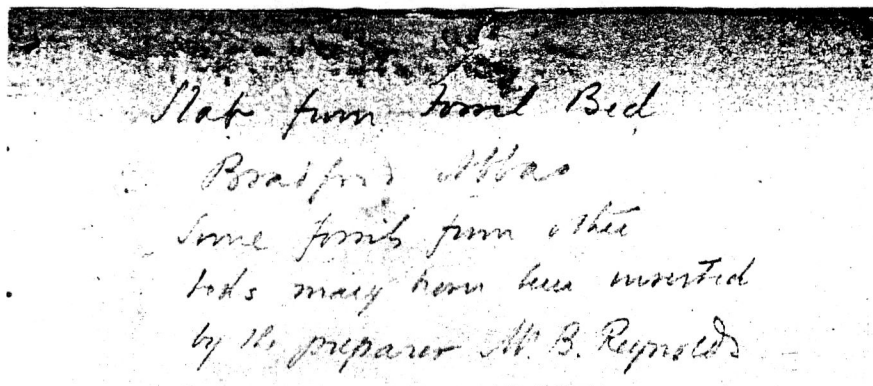 Slab from Fossil Bed
Bradford Abbas
Some fossils from other
beds may have been inserted
by the preparer M. B. Reynolds